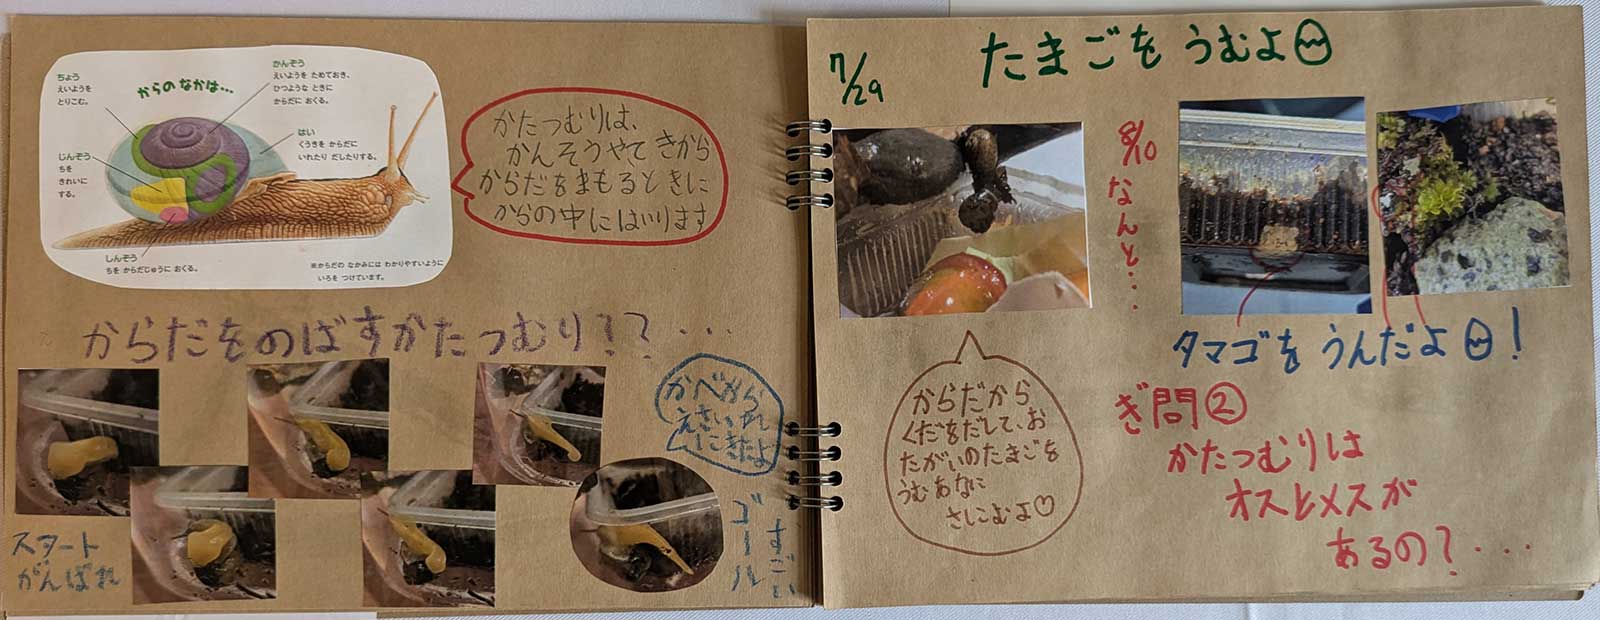 からの なかは…
ちょう
えいようを
とりこむ。
かんぞう
えいようを ためておき、
ひつような ときに
からだに おくる。
はい
くうきを からだに
いれたり だしたりする。
じんぞう
ちを
きれいに
する。
しんぞう
ちを からだじゅうに おくる。
※からだの なかみには わかりやすいように
いろを つけています。
かたつむりは、
かんそうやてきから
からだをまもるときに
からの中にはいります
からだをのばすかたつむり??...
かべから
えさいれ
にきたよ
スタート
がんばれ
ゴール
すごい
7/29
たまごを うむよ
8/10
なんと...
タマゴを うんだよ!
からだから
くだをだして、お
たがいのたまごを
うむあなに
さしこむよ♡
ぎ問②
かたつむりは
オスとメスが
あるの?...